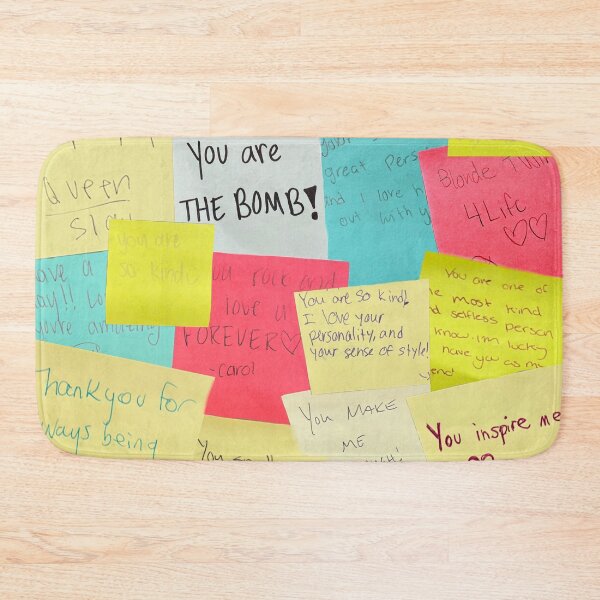 Queen
Slay
You are
THE BOMB!
great person
and I love
out with
Blonde Twin
4 Life
you are
so kind
You rock and
I love u
FOREVER
-carol
You are so kind!
I love your
personality, and
your sense of style!
You are one of
the most kind
and selfless person
I know. im lucky
have you as my
friend
Have a
day!!
You're amazing
Thank you for
always being
You
You MAKE
ME
You inspire me